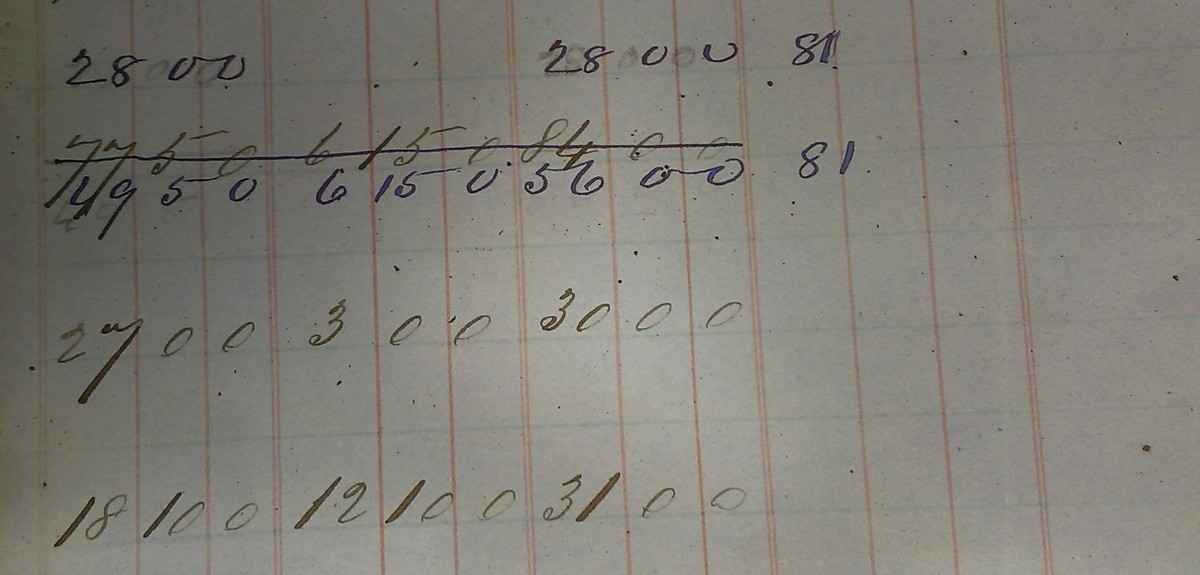 28 0 0 28 0 0 81
77 5 0 6 15 0 84 0 0
49 5 0 6 15 0 56 0 0 81
27 0 0 3 0 0 30 0 0
18 10 0 12 10 0 31 0 0